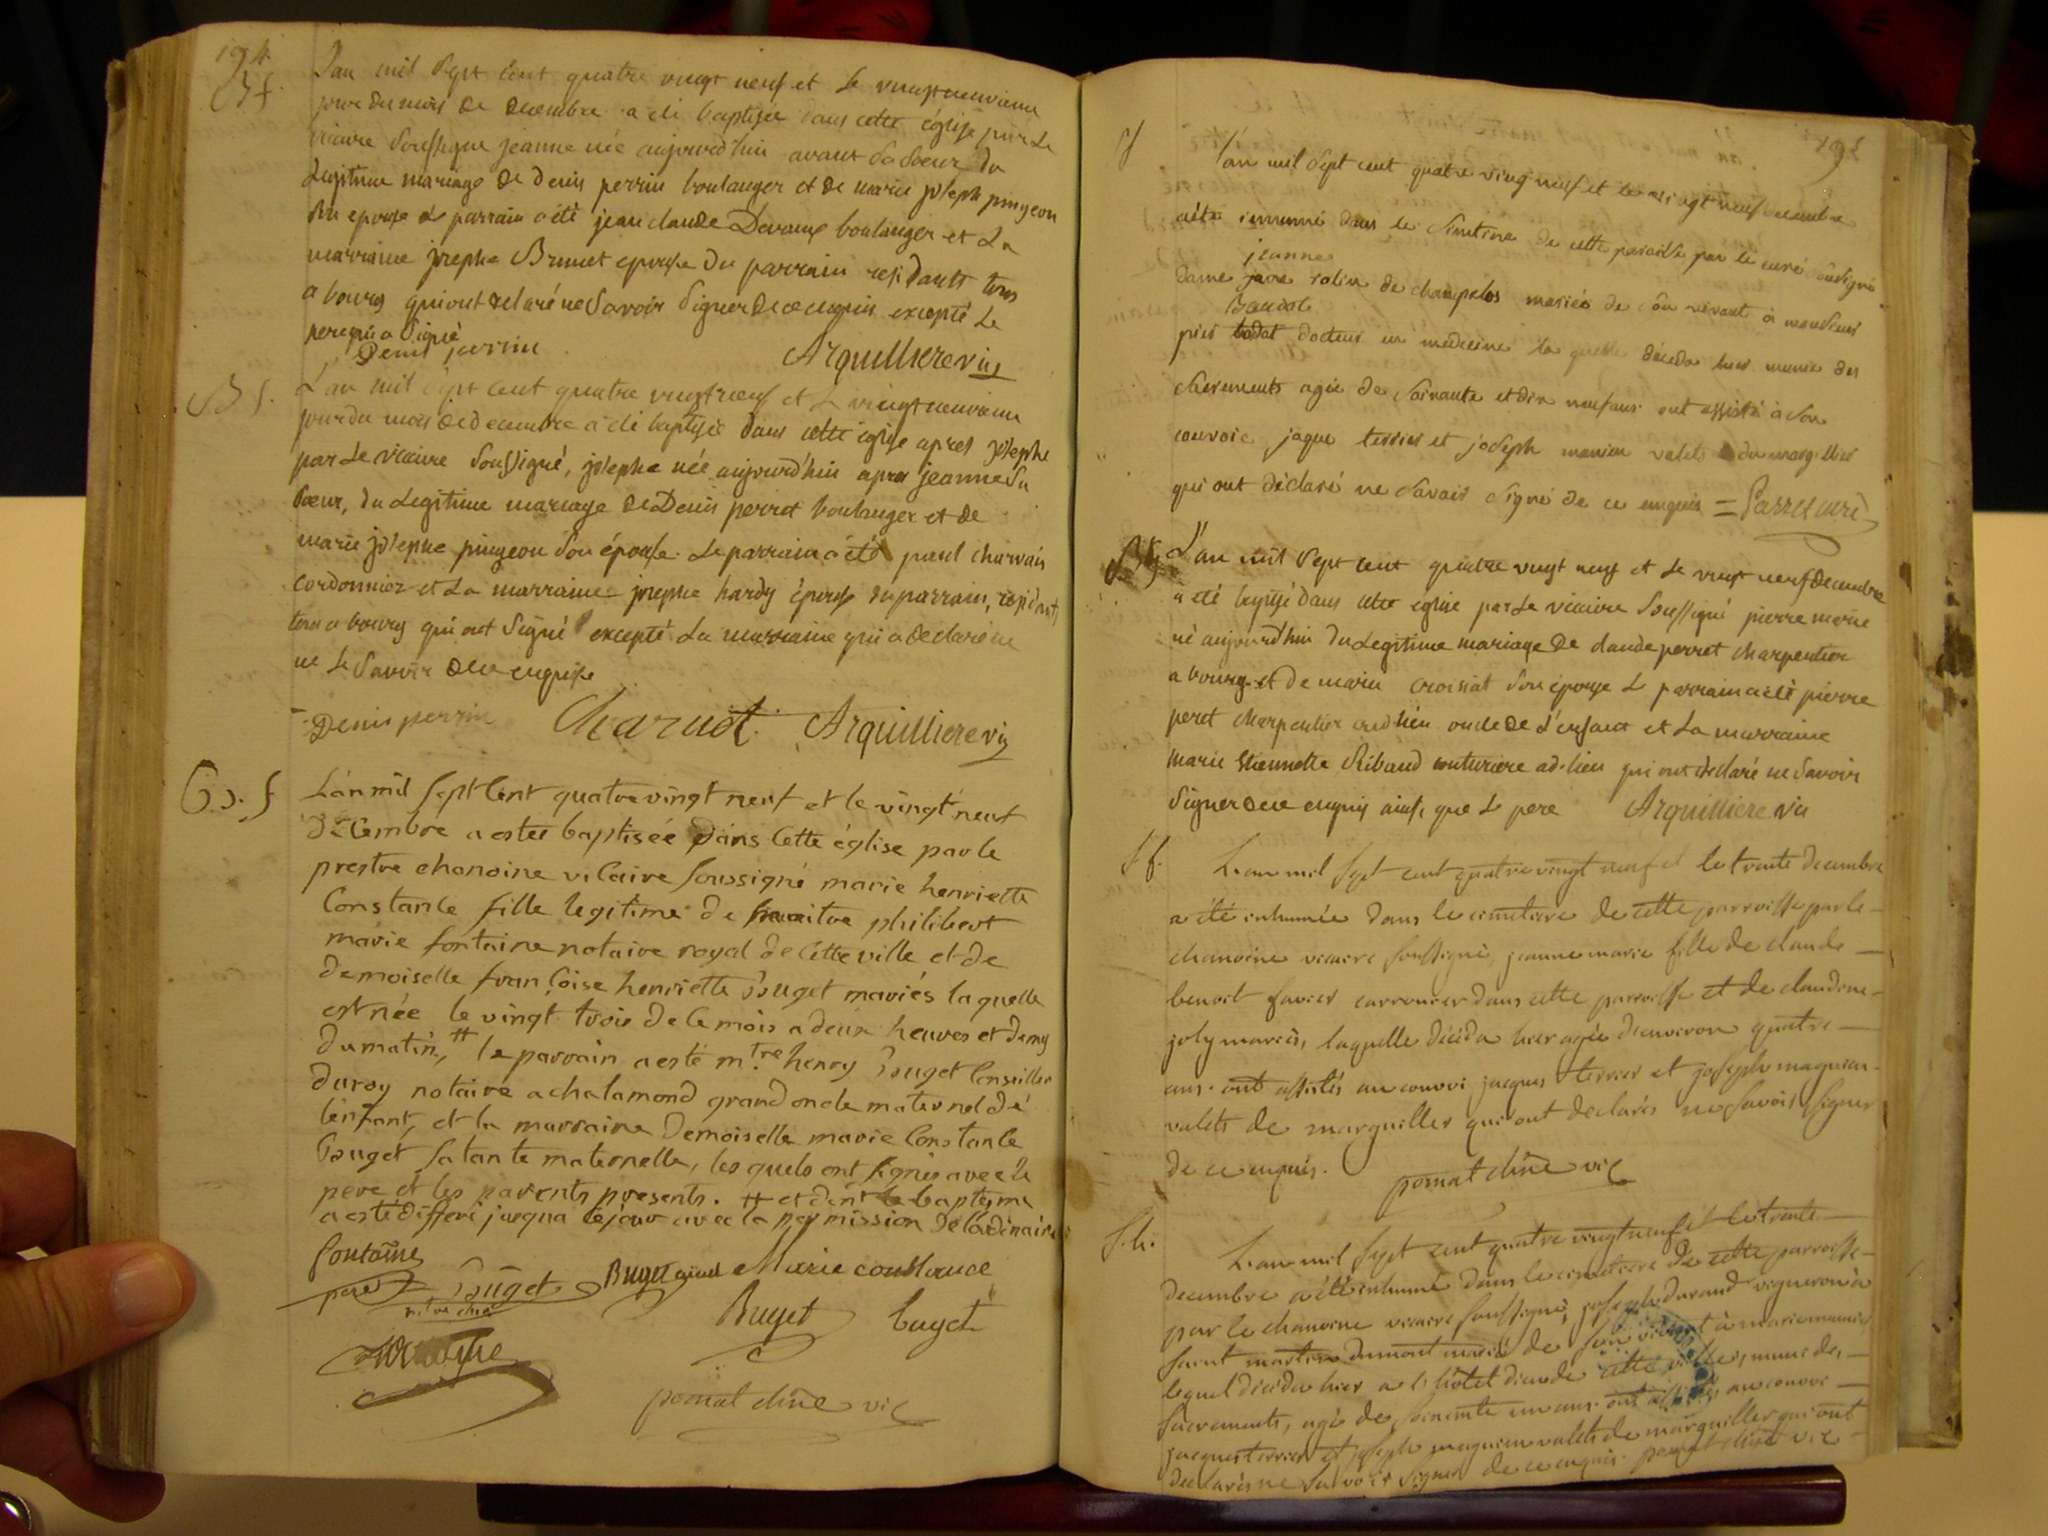 194
B f.
L'an mil Sept Cent quatre vingt neuf et Le vingt neuvieme
jour du mois de decembre a été baptisée dans cette église par Le
vicaire Soussigné jeanne née aujourd'hui avant Sa Soeur du
Legitime mariage de denis perrin boulanger et de marie joseph pingeon
Son epouse Le parrain a été jean claude Devaux boulanger et La
marraine josephe Brunet epouse du parrain residants tous
a bourg qui ont declaré ne Savoir Signer de ce enquis excepté Le
pere qui a Signé
Denis perrin Arquilliere vic
B f.
L'an mil Sept Cent quatre vingt neuf et Le vingt neuvieme
jour du mois de decembre a été baptisée dans cette église apres josephe
par Le vicaire Soussigné, josephe née aujourd'hui apres jeanne Sa
Soeur, du Legitime mariage de Denis perrot boulanger et de
marie josephe pingeon Son épouse. Le parrain a été paul charvais
cordonnier et La marraine josephe hardy épouse du parrain, residants
tous a bourg qui ont Signé excepté La marraine qui a declaré ne
ne Le Savoir de ce enquise
Denis perrin Charuot. Arquilliere vic
B. f
L'an mil Sept Cent quatre vingt neuf et le vingt neuf
Decembre a estee baptisée Dans Cette église par le
prestre chanoine vicaire Soussigné marie henriette
Constance fille legitime de maitre philibert
marie fontaine notaire royal de Cette ville et de
demoiselle françoise henriette Buget mariés laquelle
est née le vingt trois de Ce mois a deux heures et demy
du matin, # le parrain a esté m.tre henry Buget Conseiller
du roy notaire a chalamond grand oncle maternel de
l'enfant, et la marraine Demoiselle marie Constance
Buget Sa tante maternelle, les quels ont Signés avec le
pere et les parents presents. # et dont le baptesme
a esté differé jusqua cejour avec la permission de l'ordinaire
fontaine
pere Buget Buget giraud Marie constance
Buget buget
pomat chne vic
195
S
L'an mil Sept cent quatre ving neuf et le vingt neuf decembre
a été innumé dans le Simtière de cette paroisse par le curé Soussigné
jeanne
dame jane robin de champelos mariée de Son vivant à monsieur
Baudot
pier bodat docteur en medecine la quelle décéda hier munie des
Sacrements agée de Soixante et dix neuf ans ont assisté à Son
convoie jaque terrier et joseph manien valets du margillier
qui ont déclaré ne Savoir Signé de ce enquis = Parret curé
B g
L'an mil Sept Cent quatre vingt neuf et Le vingt neuf decembre
a été baptisé dans cette église par Le vicaire Soussigné pierre marie
né aujourd'hui du Legitime mariage de claude perret charpentier
a bourg et de marie croisiat Son épouse Le parrain a été pierre
peret charpentier audit lieu oncle de L'enfant et La marraine
marie Etiennette Ribaud couturiere ad. lieu qui ont declaré ne Savoir
Signer de ce enquis ainsi que Le pere Arquilliere vic
S f.
L'an mil Sept cent quatre vingt neuf et le trente decembre
a été inhumée dans le cimetiere de cette parroisse par le
chanoine vicaire Soussigné, jeanne marie fille de claude
benoit favier carronier dans cette parroisse et de claudine
joly mariés, laquelle décéda hier agée d'environ quatre
ans. ont assistés au convoi jacques terrier et joseph magnien
valets de marguiller qui ont declarés ne Savoir Signer
de ce enquis. pomat chne vic
S. h.
L'an mil Sept cent quatre vingt neuf et le trente
decembre a été inhumé dans le cimetiere de cette parroisse
par le chanoine vicaire Soussigné, joseph durand vigneron à
Saint martin dumont marié de Son vivant à marie
lequel décéda hier a l'hôtel dieu de cette ville, muni des
Sacrements, agé de Soixante un ans. ont assistés au convoi
jacques terrier et joseph magnien valets de marguiller qui ont
declarés ne Savoir Signer de ce enquis. pomat chne vic